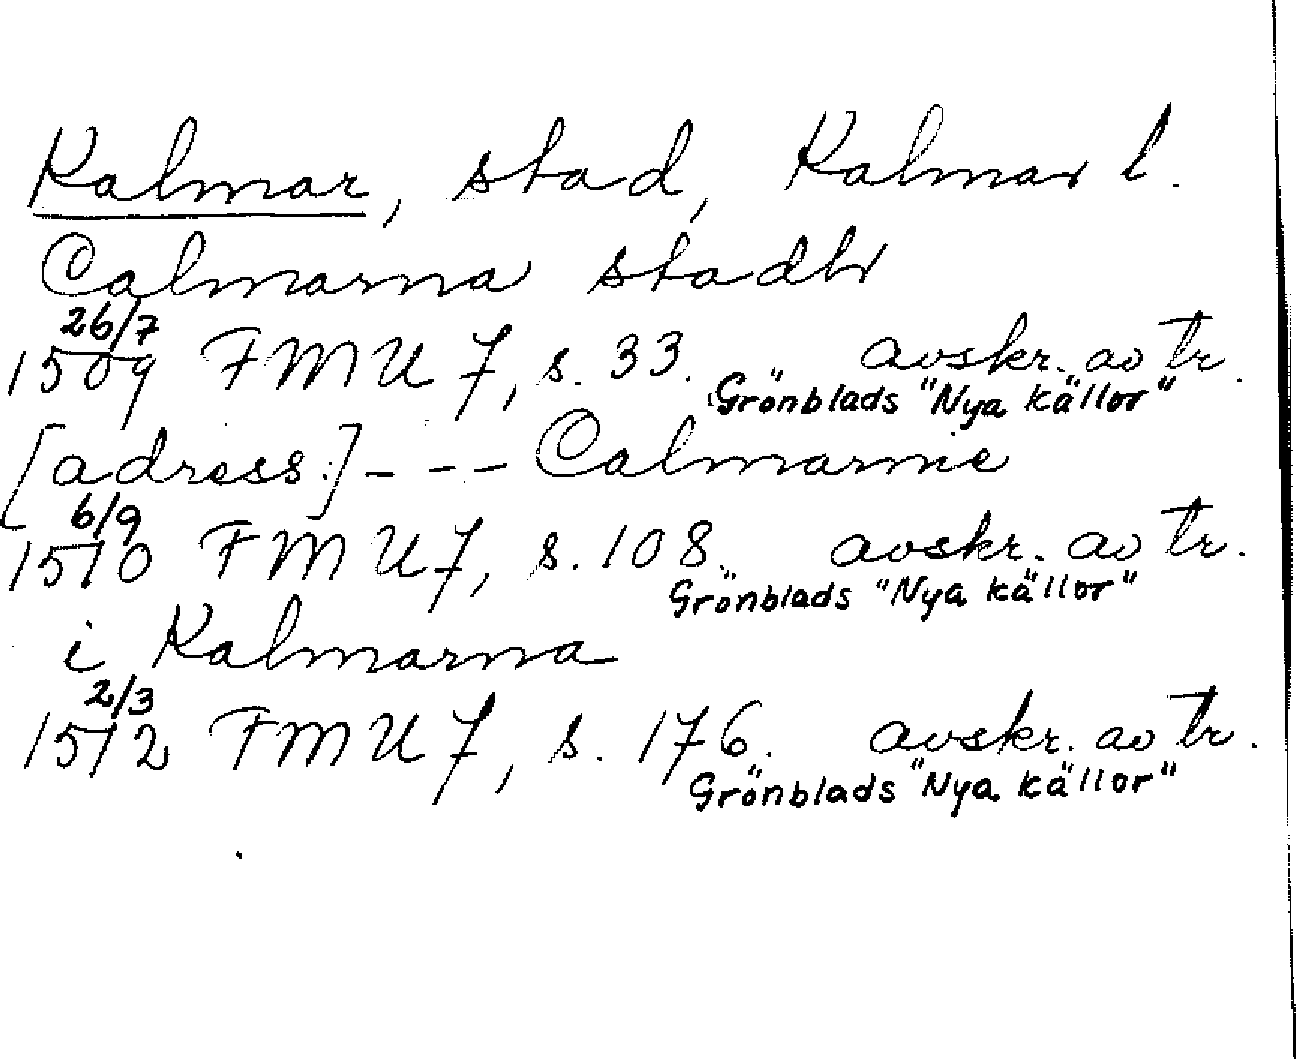 Kalmar, stad, Kalmar l.
Calmarna stadh
26/7
1509 FMU 7, s. 33. avskr. av tr.
Grönblads "Nya källor"
[adress:] - - - Calmarnie
6/9
1510 FMU 7, s. 108. avskr. av tr.
Grönblads "Nya källor"
i Kalmarna
2/3
1512 FMU 7, s. 176. avskr. av tr.
Grönblads "Nya källor"